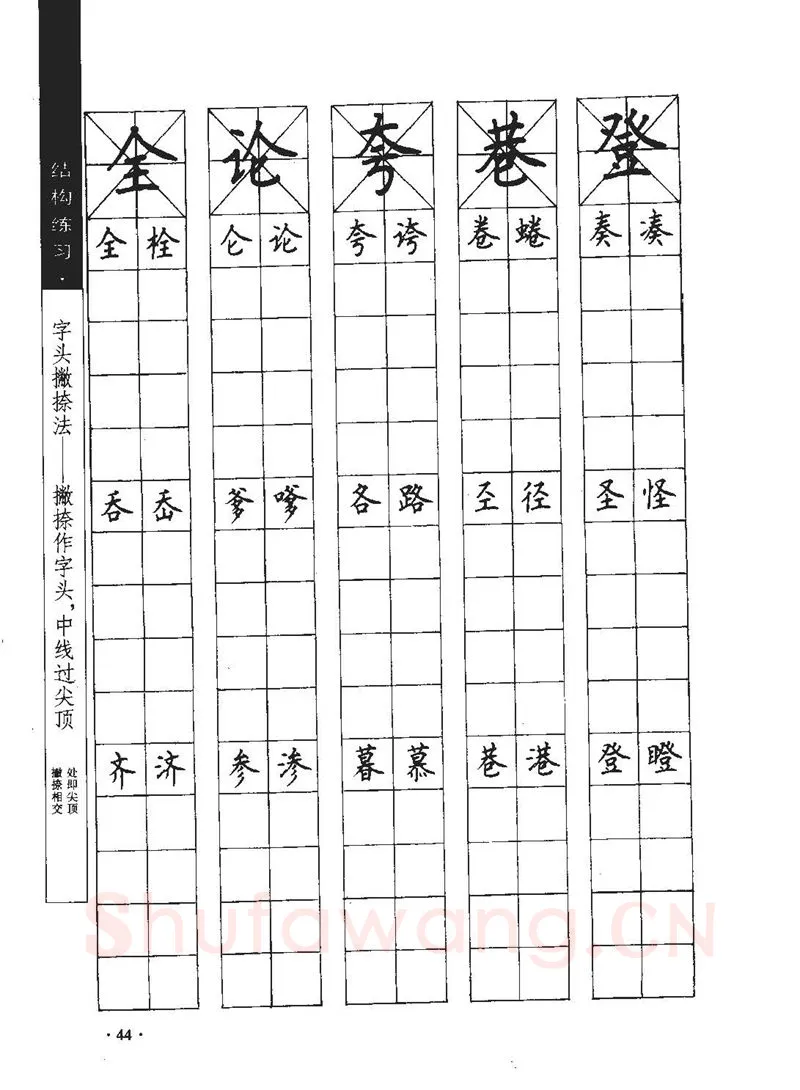 结构练习·
字头撇捺法——撇捺作字头，中线过尖顶
撇捺相交
处即尖顶
全 论 夸 巷 登
全 栓 仑 论 夸 诲 卷 蜷 奏 凑
吞 岙 爹 嗲 各 路 圣 径 圣 怪
齐 济 参 渗 暮 慕 巷 港 登 瞪
Shufawang.CN
·44·